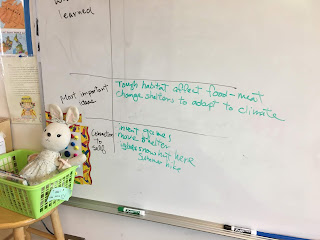 learned
Most important
ideas
Tough habitat affect food-meat
change shelters to adapt to climate
Connection
to
self
invent games
move shelter
igloo snow hut here
summer hike